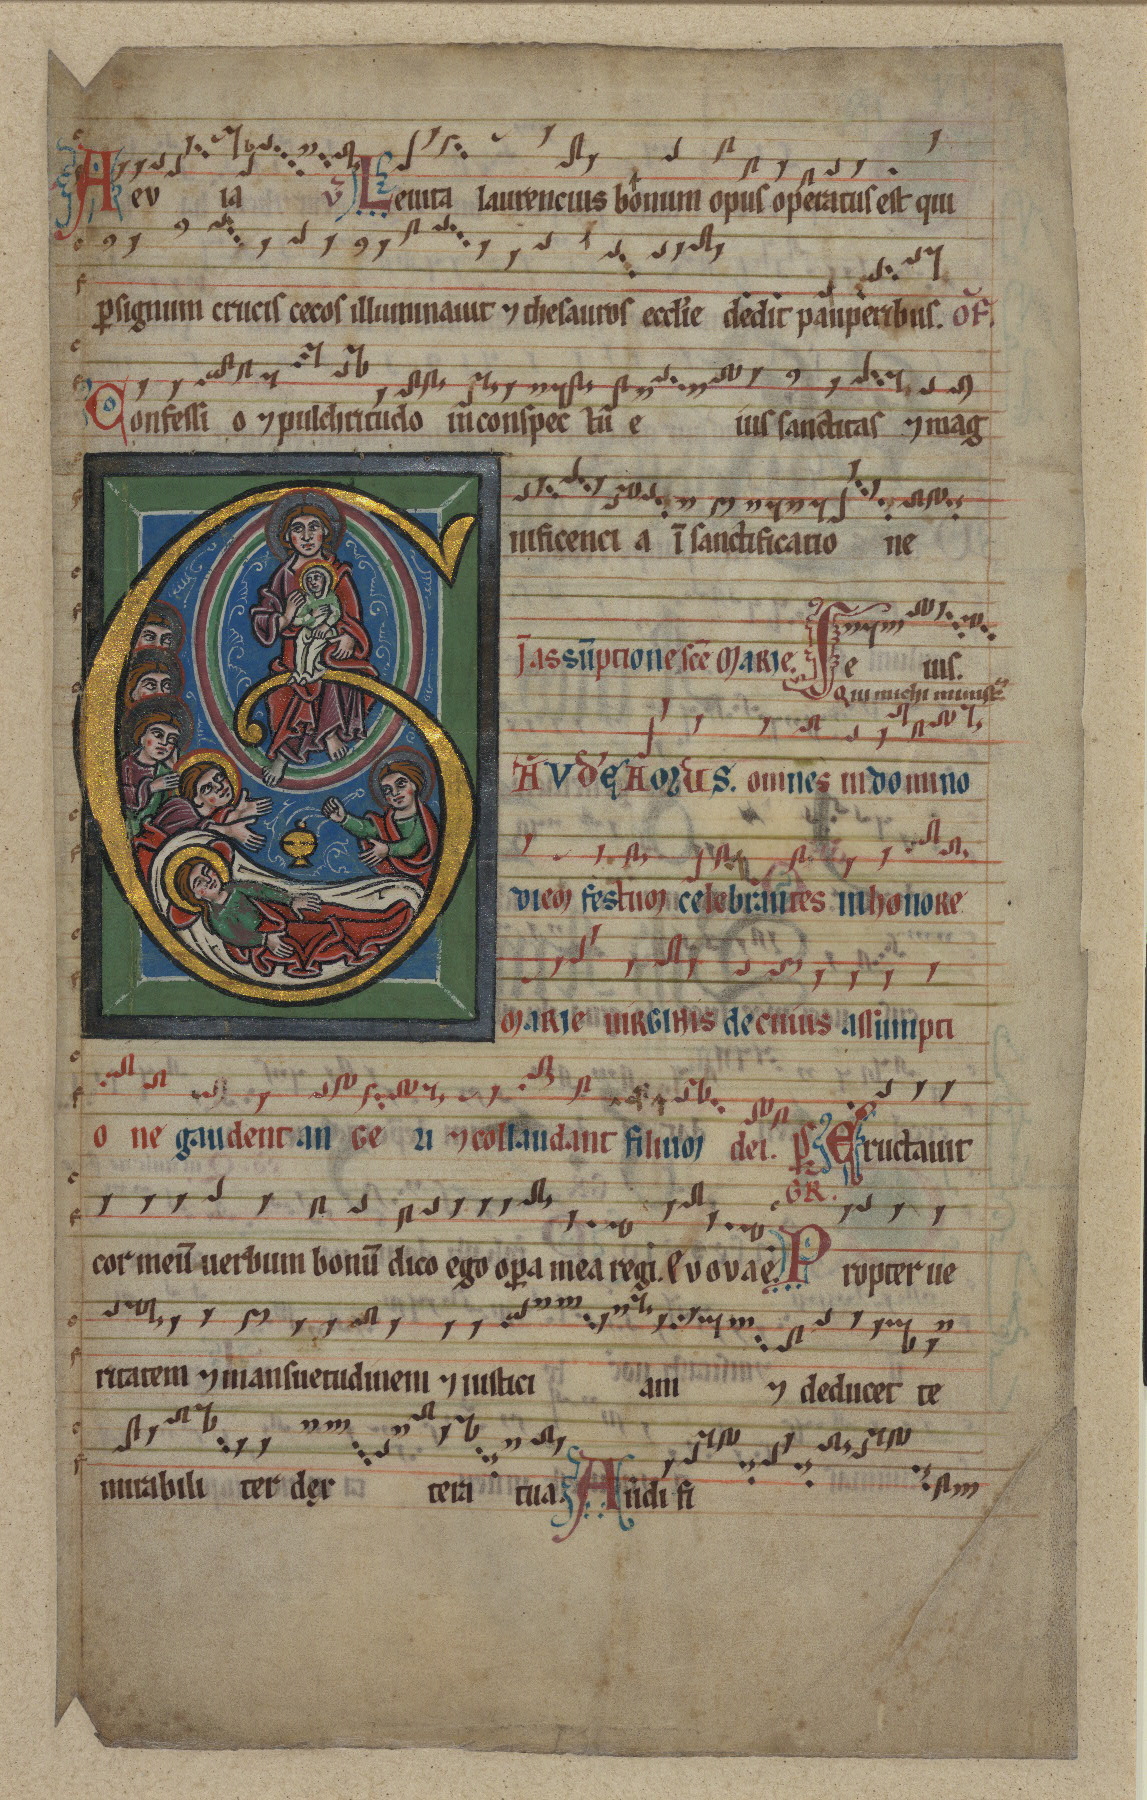 Aev ia v̄ Leuita laurencius bonum opus operatus est qui
p̱signum crucis cecos illuminauit ⁊ thesauros eccl'ie dedit pauperibus. OF.
Confessi o ⁊ pulchritudo in conspec tū e ius sanctitas ⁊ mag
nificenci a ī sanctificatio ne
J assūptione scē Marie. Ie ius.
Qui michi minist
G AVDEAMUS. omnes in domino
diem festum celebrantes in honore
Marie uirginis de cuius assumpti
o ne gaudent an ge li ⁊ collaudant filium dei. ps Eructauit
GR.
cor meū uerbum bonū dico ego opa mea regi. Evovae. Propter ue
ritatem ⁊ mansuetudinem ⁊ iustici am ⁊ deducet te
mirabili ter der tera tua Audi fi